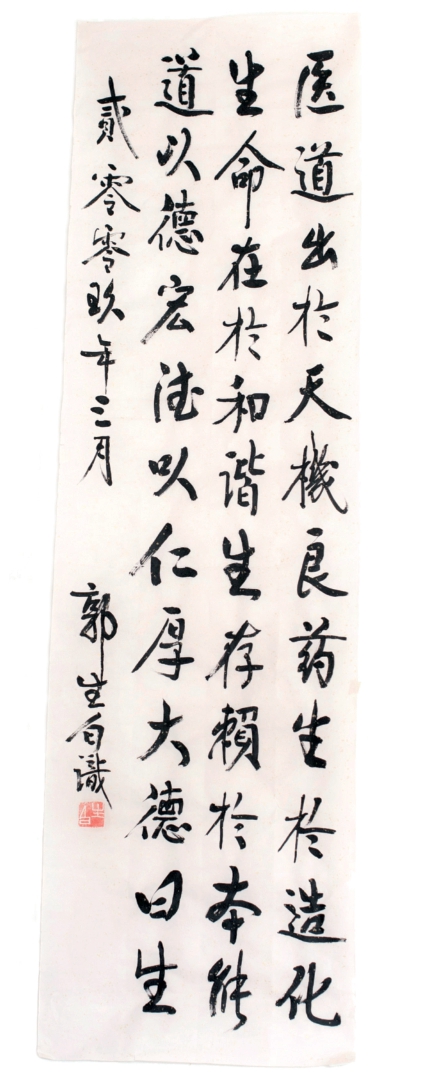 医道出於天機良药生於造化
生命在於和谐生存賴於本能
道以德宏德以仁厚大德曰生
貳零零玖年三月
郭生白識
生白